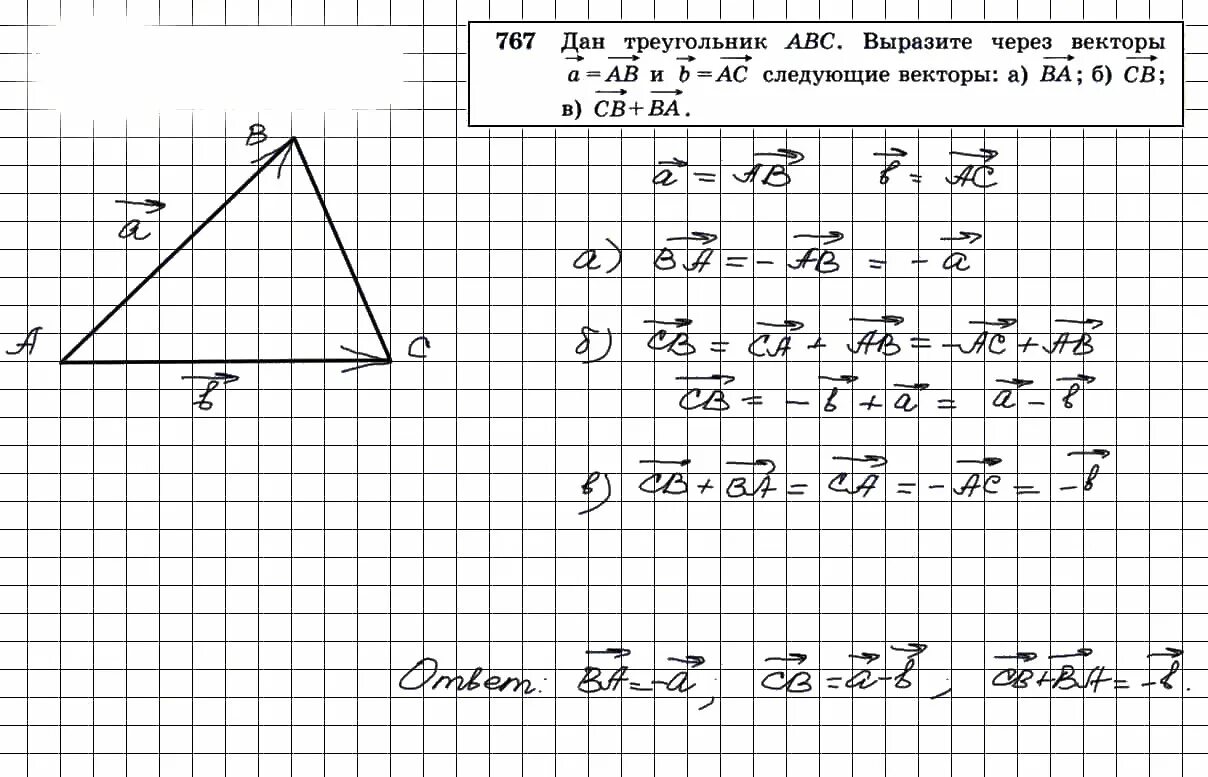 767 Дан треугольник ABC. Выразите через векторы
a⃗ = AB⃗ и b⃗ = AC⃗ следующие векторы: а) BA⃗; б) CB⃗;
в) CB⃗ + BA⃗.
B
a⃗
A
C
b⃗
a⃗ = AB⃗ b⃗ = AC⃗
а) BA⃗ = - AB⃗ = - a⃗
б) CB⃗ = CA⃗ + AB⃗ = -AC⃗ + AB⃗
CB⃗ = - b⃗ + a⃗ = a⃗ - b⃗
в) CB⃗ + BA⃗ = CA⃗ = - AC⃗ = -b⃗
Ответ: BA⃗ = -a⃗; CB⃗ = a⃗ - b⃗; CB⃗ + BA⃗ = -b⃗.